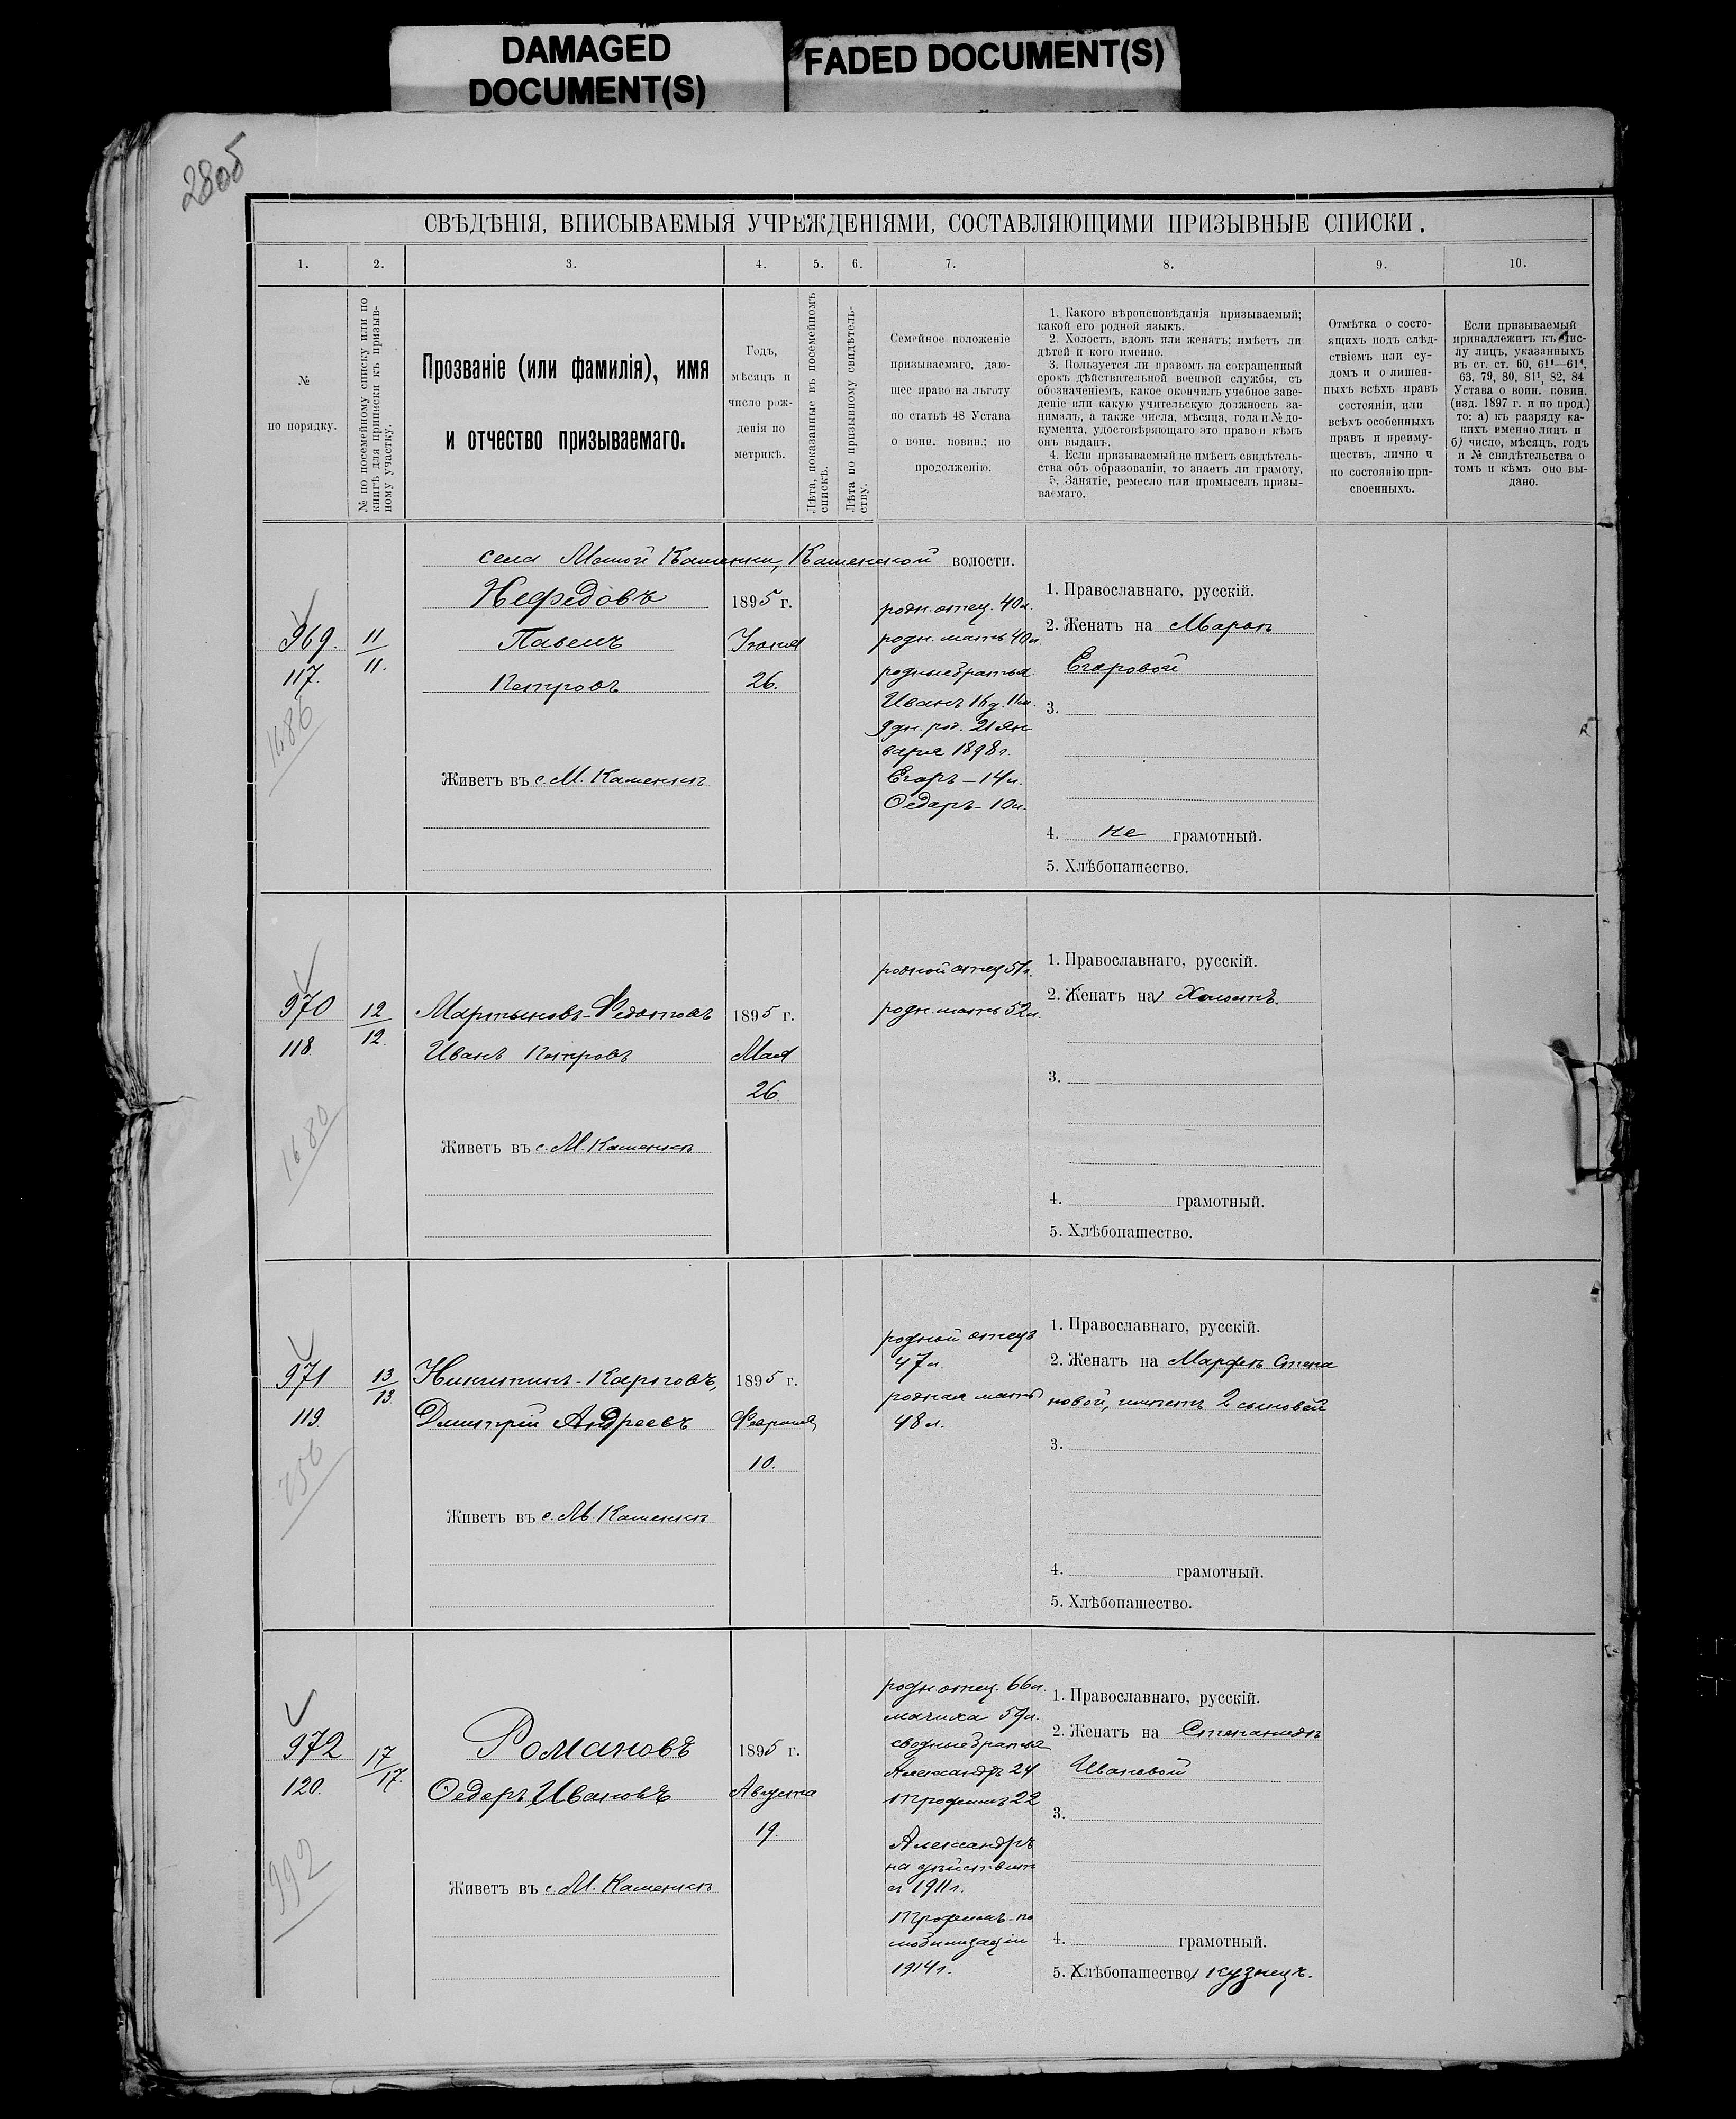 DAMAGED
DOCUMENT(S)
FADED DOCUMENT(S)
2805
СВѢДѢНІЯ, ВПИСЫВАЕМЫЯ УЧРЕЖДЕНІЯМИ, СОСТАВЛЯЮЩИМИ ПРИЗЫВНЫЕ СПИСКИ.
1. 2. 3. 4. 5. 6. 7. 8. 9. 10.
№
по порядку.
№ по посемейному списку или по
книгѣ для приписки къ призыв-
ному участку.
Прозваніе (или фамилія), имя
и отчество призываемаго.
Годъ,
мѣсяцъ и
число рож-
денія по
метрикѣ.
Лѣта, показанные въ посемейномъ
спискѣ.
Лѣта по призывному свидѣтель-
ству.
Семейное положеніе
призываемаго, даю-
щее право на льготу
по статьѣ 48 Устава
о воин. повин.; по
продолженію.
1. Какого вѣроисповѣданія призываемый;
какой его родной языкъ.
2. Холостъ, вдовъ или женатъ; имѣетъ ли
дѣтей и кого именно.
3. Пользуется ли правомъ на сокращенный
срокъ дѣйствительной военной службы, съ
обозначеніемъ, какое окончилъ учебное заве-
деніе или какую учительскую должность за-
нималъ, а также числа, мѣсяца, года и № до-
кумента, удостовѣряющаго это право и кѣмъ
онъ выданъ.
4. Если призываемый не имѣетъ свидѣтель-
ства объ образованіи, то знаетъ ли грамоту.
5. Занятіе, ремесло или промыселъ призы-
ваемаго.
Отмѣтка о состо-
ящихъ подъ слѣд-
ствіемъ или су-
домъ и о лишен-
ныхъ всѣхъ правъ
состоянія, или
всѣхъ особенныхъ
правъ и преиму-
ществъ, лично и
по состоянію при-
своенныхъ.
Если призываемый
принадлежитъ къ чис-
лу лицъ, указанныхъ
въ ст. ст. 60, 61¹—61⁴,
63, 79, 80, 81¹, 82, 84
Устава о воин. повин.
(изд. 1897 г. и по прод.)
то: а) къ разряду ка-
кихъ именно лицъ и
б) число, мѣсяцъ, годъ
и № свидѣтельства о
томъ и кѣмъ оно вы-
дано.
села Малой Каменки, Каменской волости.
969.
117.
1686
11
11.
Нефедовъ
Павелъ
Петровъ
Живетъ въ с. М. Каменкѣ
1895 г.
Іюня
26.
родн. отец. 40л.
родн. мать 40л.
родные братья
Иванъ 16 г. 11м.
9 дн. род. 21 Ян
варя 1898г.
Егоръ — 14л.
Ѳедоръ - 10л.
1. Православнаго, русскій.
2. Женатъ на Марѳѣ
Егоровой
3.
4. не грамотный.
5. Хлѣбопашество.
970
118.
1680
12
12.
Мартыновъ-Федотовъ
Иванъ Петровъ
Живетъ въ с. М. Каменкѣ
1895 г.
Мая
26.
родной отец 57л.
родн. мать 52л.
1. Православнаго, русскій.
2. Женатъ на Холостъ.
3.
4. грамотный.
5. Хлѣбопашество.
971
119.
750
13
13.
Никитинъ-Карповъ,
Дмитрій Андреевъ
Живетъ въ с. М. Каменкѣ
1895 г.
Февраля
10.
родной отецъ
47л.
родная мать
48л.
1. Православнаго, русскій.
2. Женатъ на Марфѣ Степа
новой, имѣетъ 2 сыновей
3.
4. грамотный.
5. Хлѣбопашество.
972
120.
992
17
17.
Романовъ
Ѳедоръ Ивановъ
Живетъ въ с. М. Каменкѣ
1895 г.
Августа
19.
родн отец. 66л.
мачиха 59л.
сводные братья
Александръ 24
Трофимъ 22
Александръ
на дѣйствит
съ 1911г.
Трофимъ-по
мобилизаціи
1914г.
1. Православнаго, русскій.
2. Женатъ на Степанидѣ
Ивановой
3.
4. грамотный.
5. Хлѣбопашество кузнецъ.